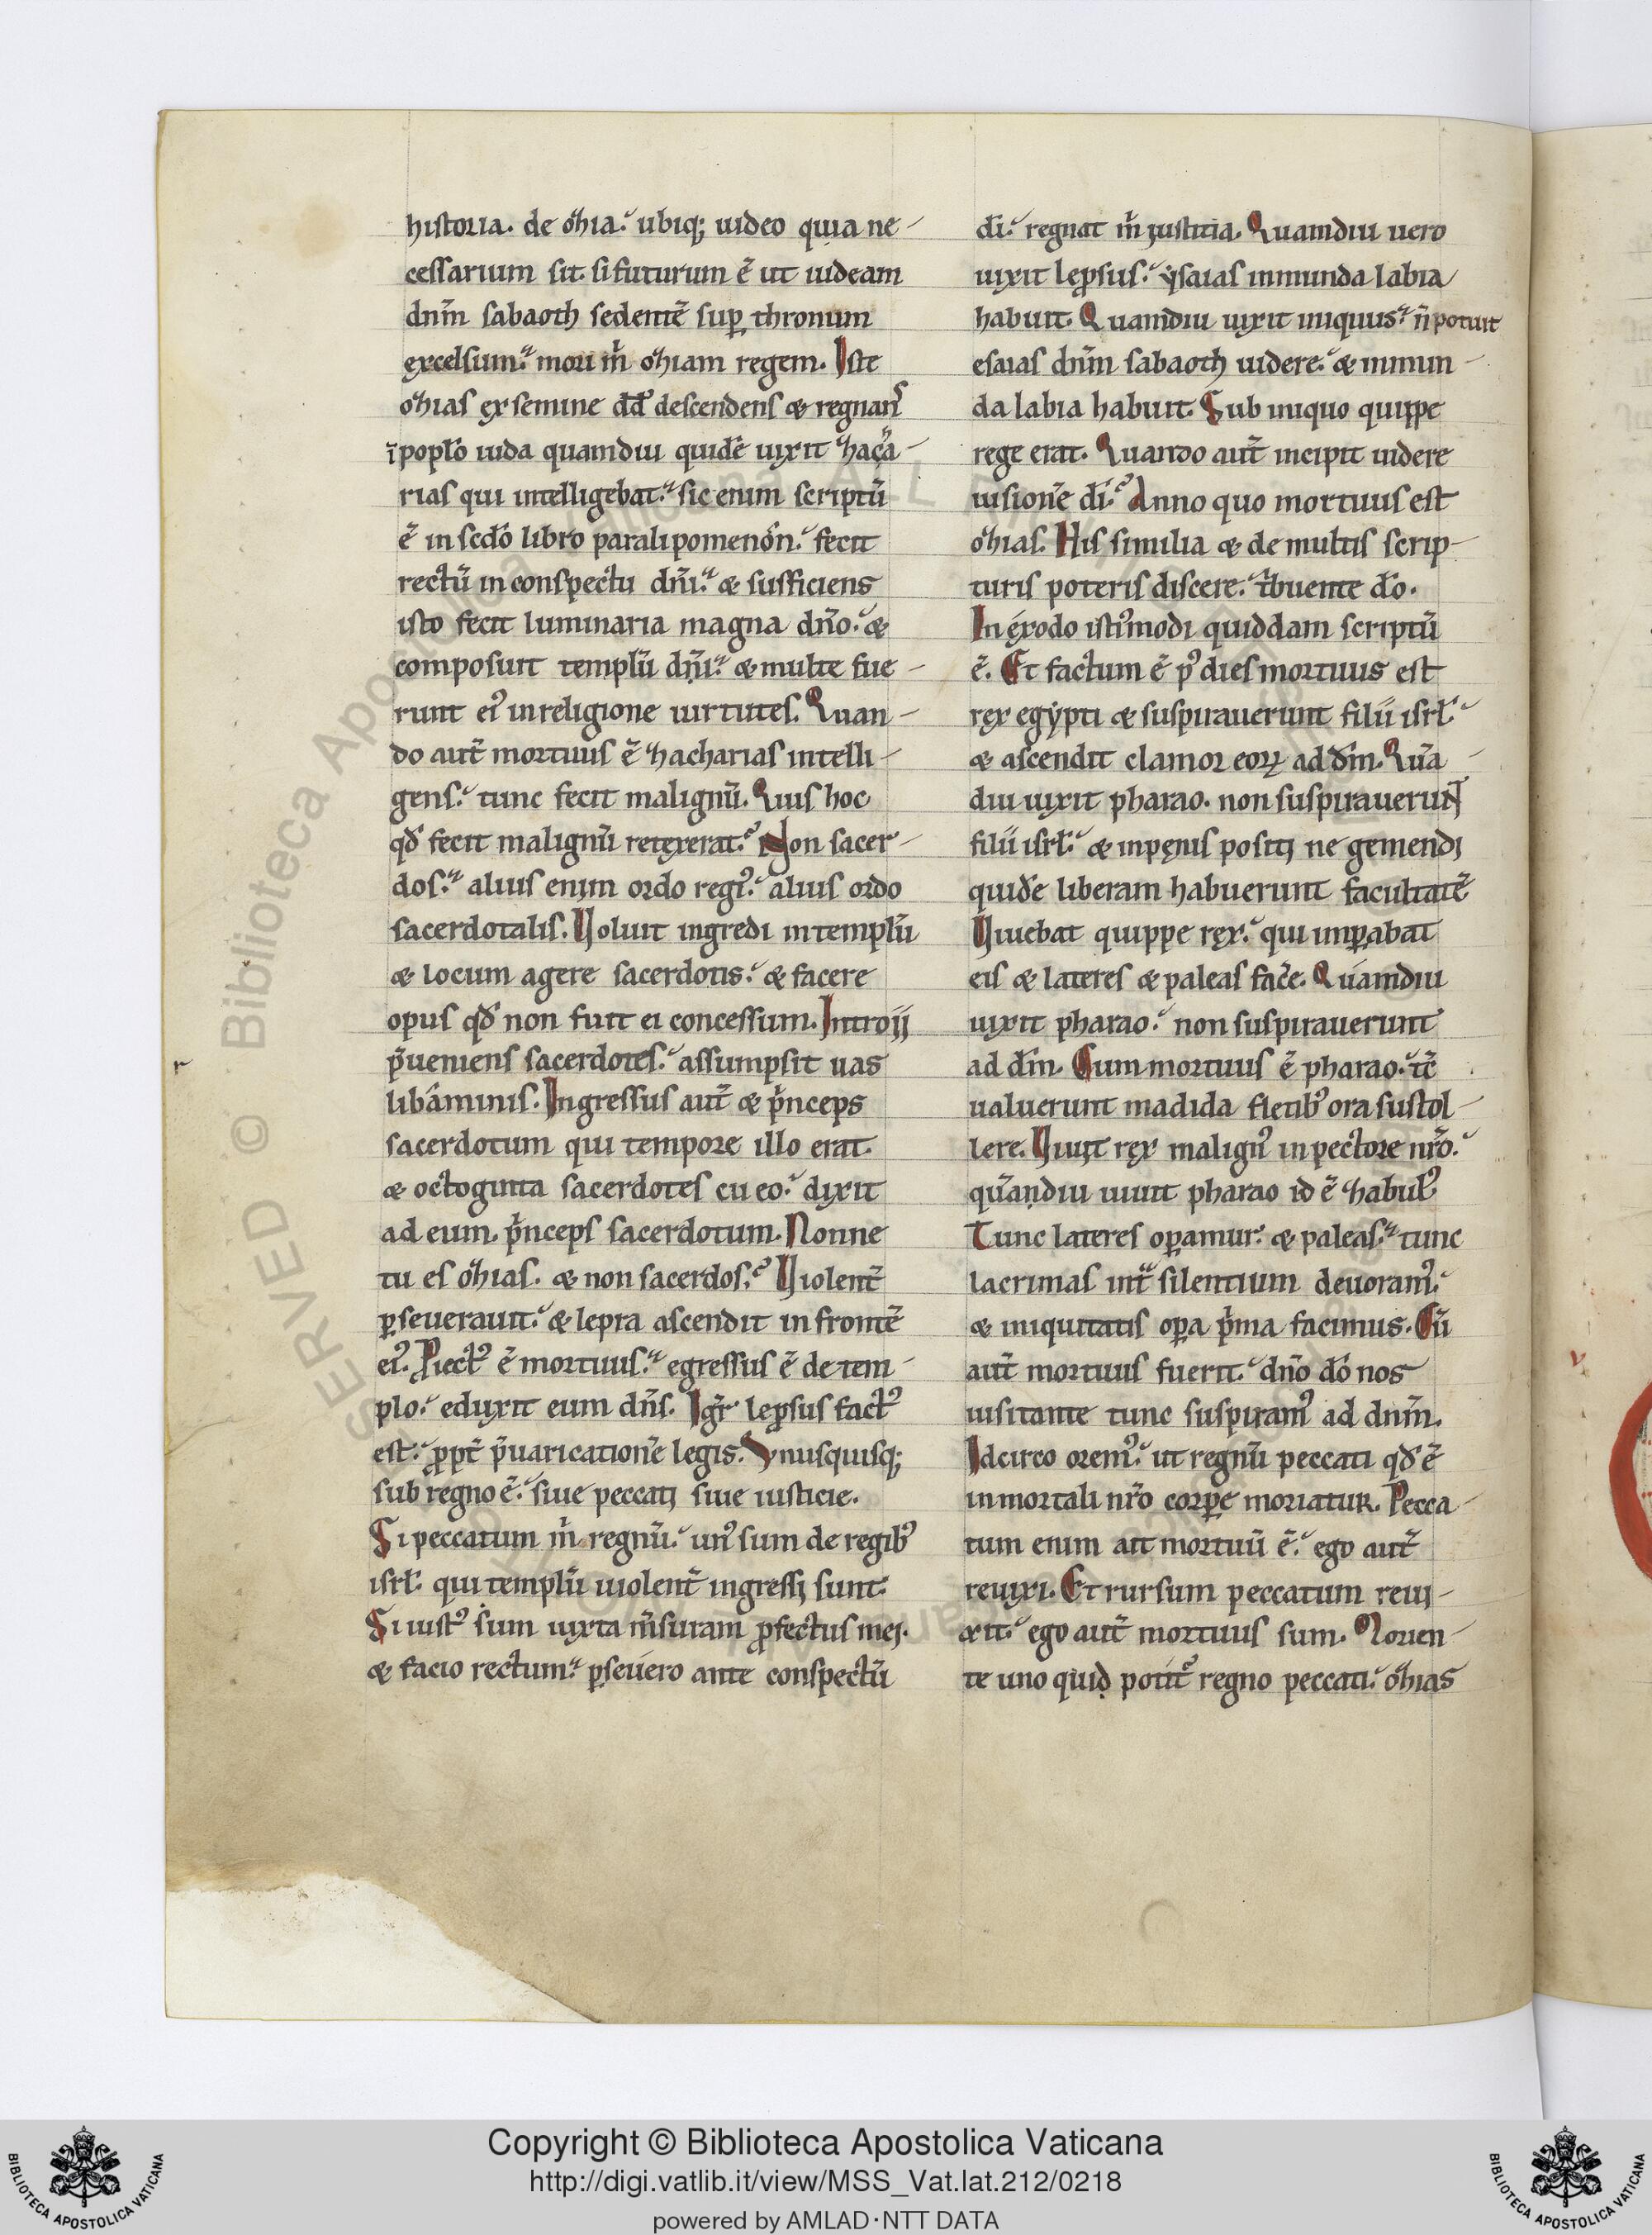 historia. de oʒhia. ubiq; uideo quia ne-
cessarium sit. si futurum ē ut uideam
dnm̄ sabaoth sedentē sup thronum
excelsum. mori m̄ oʒhiam regem. Iste
oʒhias ex semine dd̄ descendens & regnans
ī poplo iuda quamdiu quidē uixit
rias qui intelligebat. sic enim scriptū
ē in scdo libro paralipomenón. fecit
rectū in conspectu dn̄i. & sufficiens
isto fecit luminaria magna dn̄o. &
composuit templū dn̄i. & multe fue-
runt ei᾽ in religione uirtutes. Quan-
do aut̄ mortuus ē ʒhacharias intelli-
gens. tunc fecit malignū. Quis hoc
qd̄ fecit malignū retexerat. Non sacer-
dos. alius enim ordo regi᾽. alius ordo
sacerdotalis. Voluit ingredi in templū
& locum agere sacerdotis. & facere
opus qd̄ non fuit ei concessum. Introij
p̄ueniens sacerdotes. assumpsit uas
libáminis. Ingressus aut̄ & p̄nceps
sacerdotum qui tempore illo erat.
& octoginta sacerdotes cū eo. dixit
ad eum. p̄nceps sacerdotum. Nonne
tu es oʒhias. & non sacerdos. Violent̄
pseuerauit. & lepra ascendit in frontē
ei᾽. Piect᾽ ē mortuus. egressus ē de tem-
plo. eduxit eum dn̄s. Igr̄ leprosus fact᾽
est. ppt̄ p̄uaricationē legis. Vnusquisq;
sub regno ē. siue peccati siue iusticie.
Si peccatum m̄ regnū. un᾽ sum de regib᾽
isrl̄. qui templū uiolent̄ ingressi sunt.
Si iust᾽ sum iuxta m̄suram pfectus mei.
& facio rectum. pseuero ante conspectū
di. regnat m̄ iustitia. Quamdiu uero
uixit leprosus. ysaias inmunda labia
habuit. Quamdiu uixit iniquus. n̄ potuit
esaias dnm̄ sabaoth uidere. & inmun-
da labia habuit. Sub iniquo quippe
rege erat. Quando aut̄ incipit uidere
uisionē di. Anno quo mortuus est
oʒhias. His similia & de multis scrip-
turis poteris discere. t̄buente do.
In exodo isti᾽modi quiddam scriptū
ē. Et factum ē p᾽ dies mortuus est
rex egypti & suspirauerunt filii isrl̄.
& ascendit clamor eoꝝ ad dm̄. Quā
diu uixit pharao. non suspirauerunt
filii isrl̄. & in penis positi ne gemendi
quidē liberam habuerunt facultatē
Viuebat quippe rex. qui impabat
eis & lateres & paleas facē. Quamdiu
uixit pharao. non suspirauerunt
ad dm̄. Cum mortuus ē pharao. tc̄
ualuerunt madida fletib᾽ ora sustol-
lere. Viuit rex malign᾽ in pectore nr̄o.
quandiu uiuit pharao id ē ʒhabul᾽
Tunc lateres opamur. & paleas. tunc
lacrimas int̄ silentium deuoram᾽.
& iniquitatis opa p̄ma facimus. Cū
aut̄ mortuus fuerit. dn̄o do nos
uisitante tunc suspiram᾽ ad dnm̄.
Idcirco orem᾽. ut regnū peccati qd̄ ē
in mortali nr̄o corpe moriatur. Pecca-
tum enim ait mortuū ē. ego aut̄
reuixi. Et rursum peccatum reui-
xit. ego aut̄ mortuus sum. Morien-
te uno quid potuit regno peccati. oʒhias
Copyright © Biblioteca Apostolica Vaticana
http://digi.vatlib.it/view/MSS_Vat.lat.212/0218
powered by AMLAD·NTT DATA